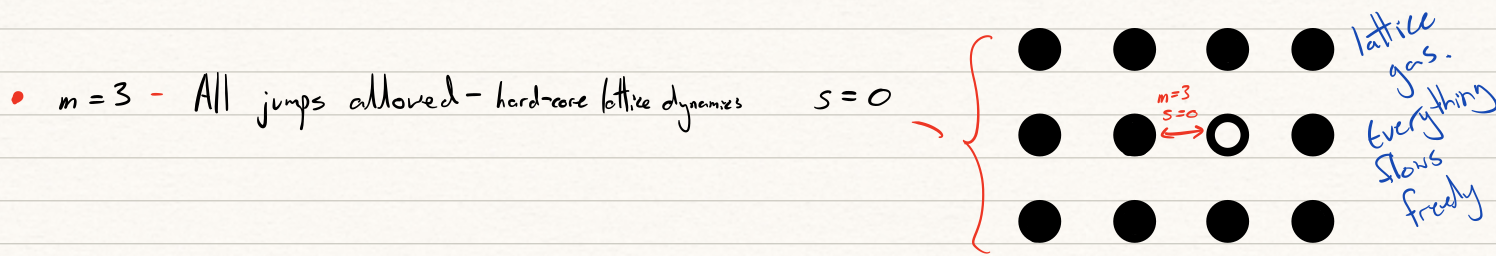 • m = 3 - All jumps allowed - hard-core lattice dynamics s = 0
m=3
s=0
lattice
gas.
Everything
flows
freely